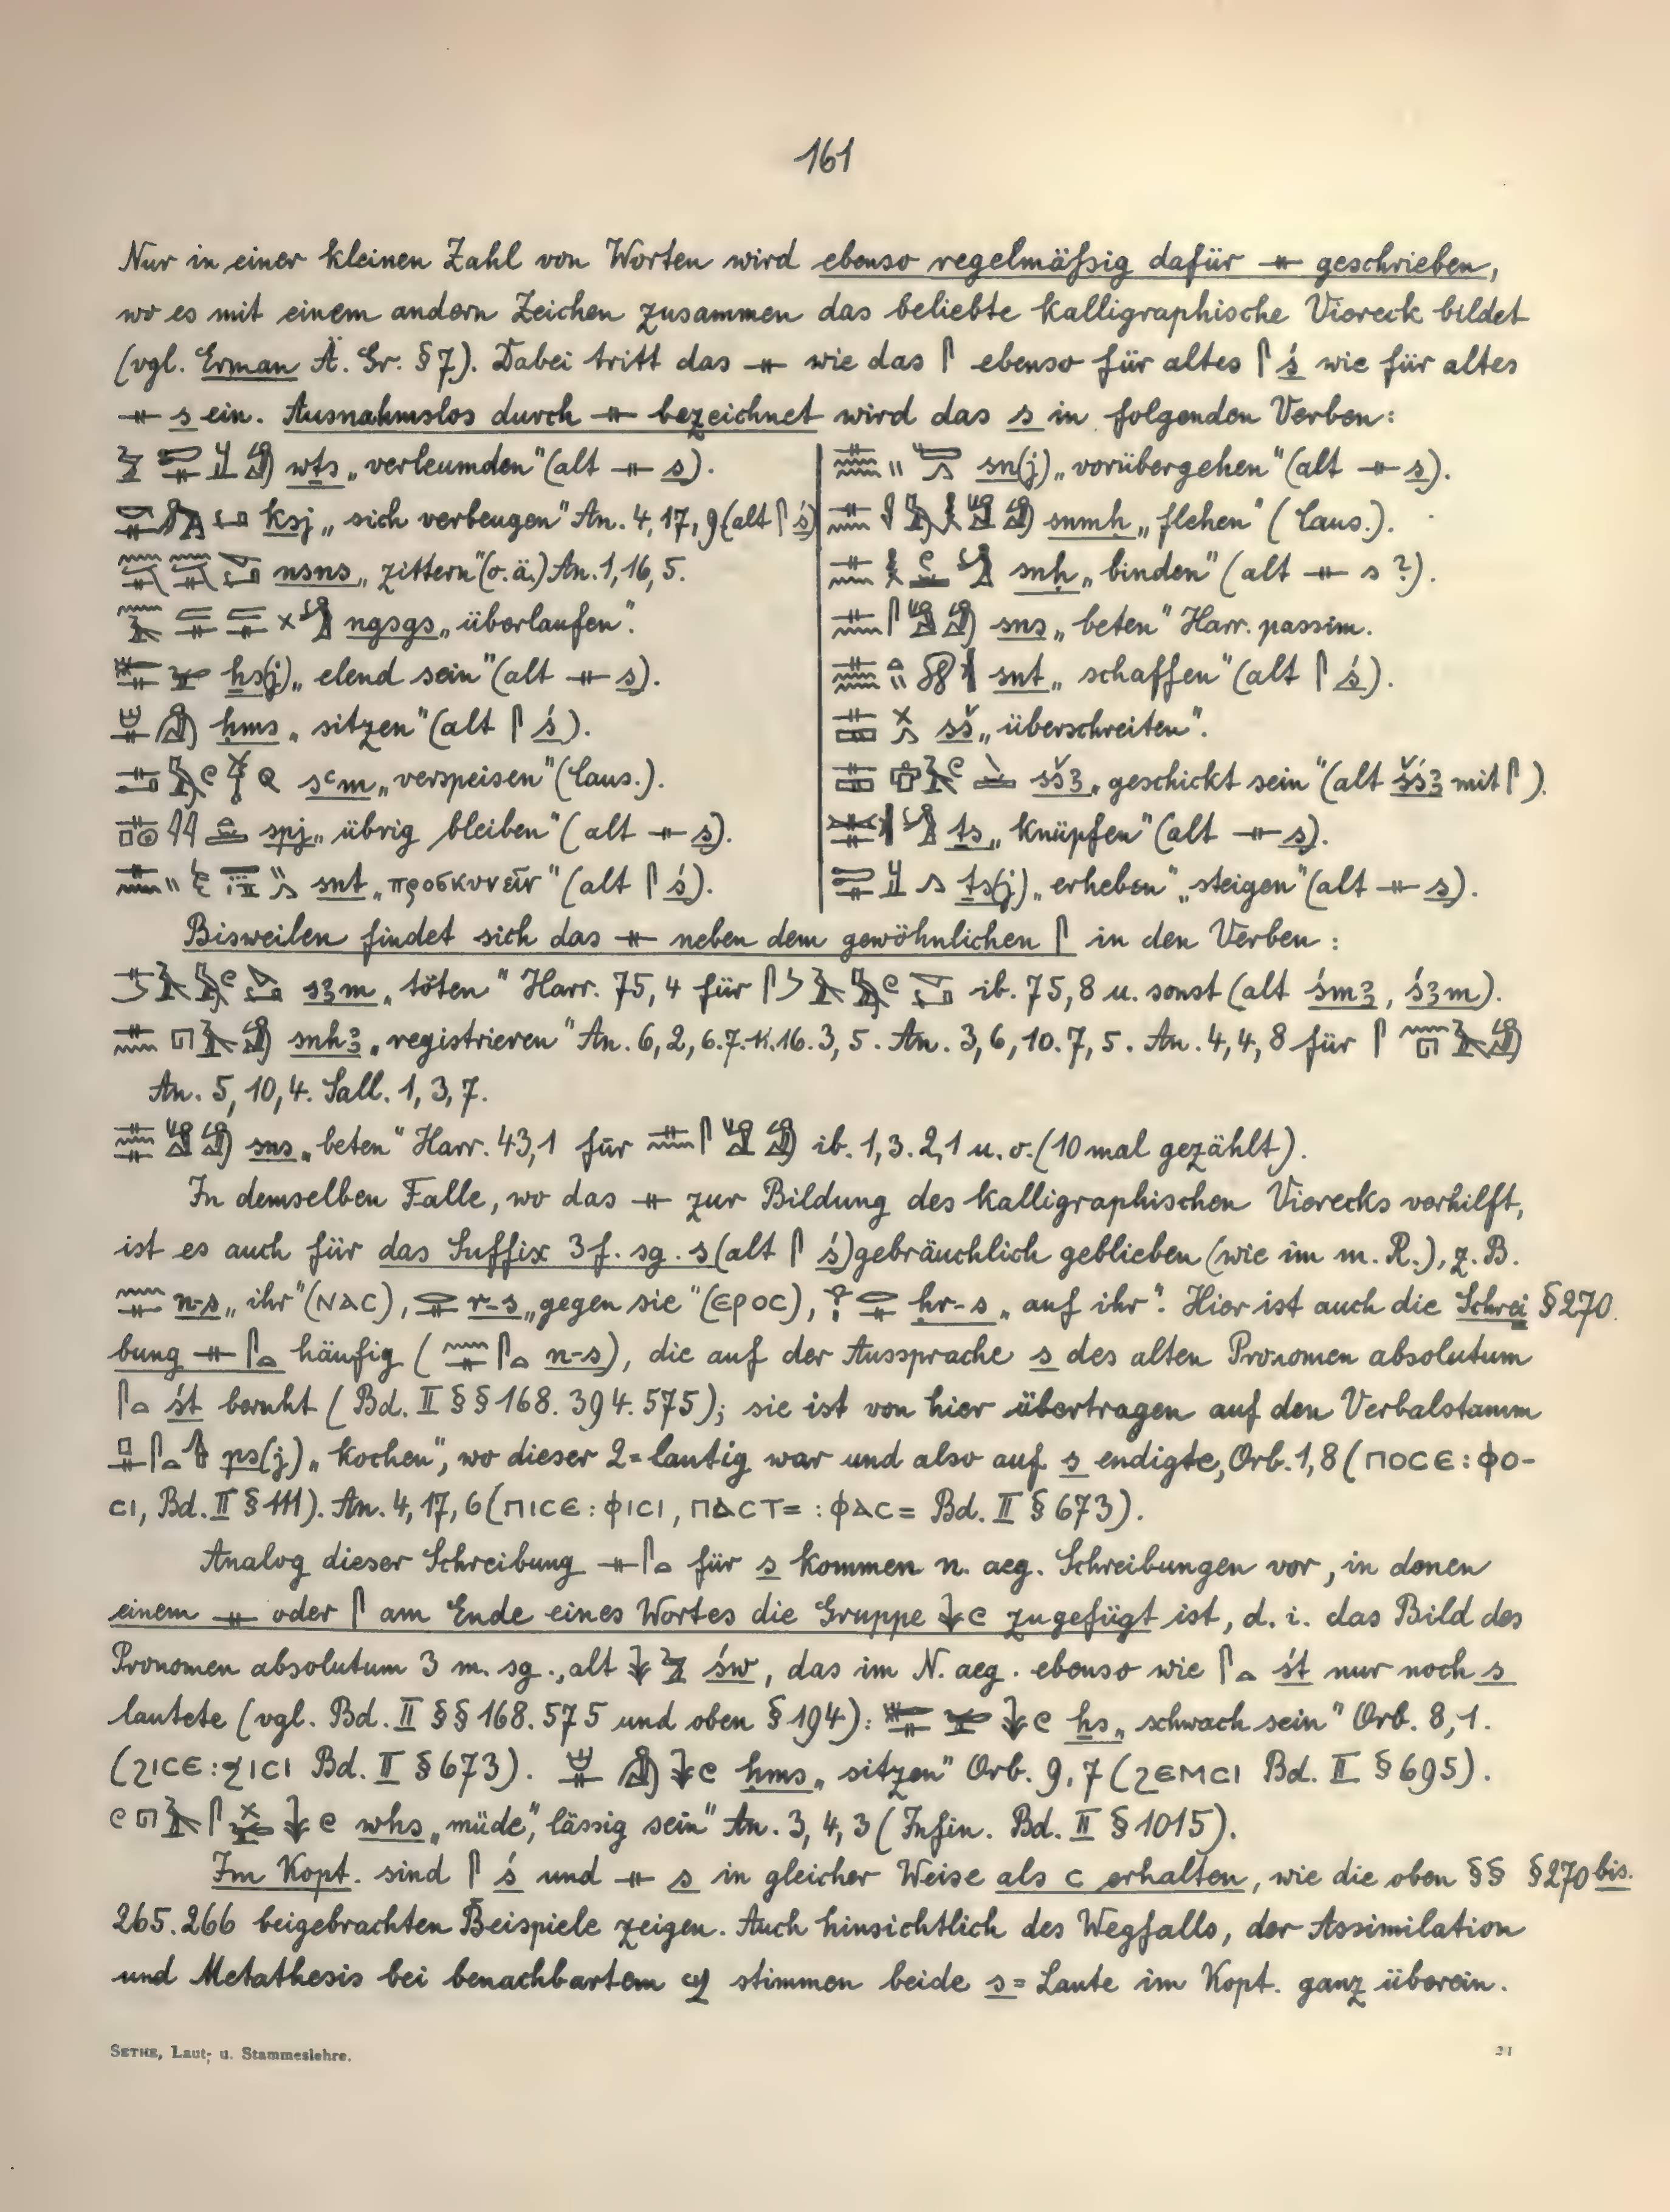 161
Nur in einer kleinen Zahl von Worten wird ebenso regelmäßig dafür 𓊃 geschrieben,
wo es mit einem andern Zeichen zusammen das beliebte kalligraphische Viereck bildet
(vgl. Erman Ä. Gr. § 7). Dabei tritt das 𓊃 wie das 𓋴 ebenso für altes 𓋴 ś wie für altes
𓊃 s ein. Ausnahmslos durch 𓊃 bezeichnet wird das s in folgenden Verben:
wṯs „verleumden" (alt 𓊃 s).
ksj „sich verbeugen" An. 4, 17, 9 (alt 𓋴 ś)
nsns „zittern" (o. ä.) An. 1, 16, 5.
ngsgs „überlaufen".
ẖs(j) „elend sein" (alt 𓊃 s).
ḥms „sitzen" (alt 𓋴 ś).
sꜥm „verspeisen" (Caus.).
spj „übrig bleiben" (alt 𓊃 s).
snt „προσκυνεῖν" (alt 𓋴 ś).
sn(j) „vorübergehen" (alt 𓊃 s).
snmḥ „flehen" (Caus.).
snḥ „binden" (alt 𓊃 s ?).
sns „beten" Harr. passim.
snt „schaffen" (alt 𓋴 ś).
sš „überschreiten".
sšꜣ „geschickt sein" (alt šśꜣ mit 𓋴).
ṯs „knüpfen" (alt 𓊃 s).
ṯs(j) „erheben" „steigen" (alt 𓊃 s).
Bisweilen findet sich das 𓊃 neben dem gewöhnlichen 𓋴 in den Verben:
sꜣm „töten" Harr. 75, 4 für ib. 75, 8 u. sonst (alt śmꜣ, śꜣm).
snhꜣ „registrieren" An. 6, 2, 6. 7. 11. 16. 3, 5. An. 3, 6, 10. 7, 5. An. 4, 4, 8 für
An. 5, 10, 4. Sall. 1, 3, 7.
sns „beten" Harr. 43, 1 für ib. 1, 3. 2, 1 u. o. (10 mal gezählt).
In demselben Falle, wo das 𓊃 zur Bildung des kalligraphischen Vierecks verhilft,
ist es auch für das Suffix 3 f. sg. s (alt 𓋴 ś) gebräuchlich geblieben (wie im m. R.), z. B.
𓈖𓊃 n-s „ihr" (ⲚⲀⲤ), 𓂋𓊃 r-s „gegen sie" (ⲈⲢⲞⲤ), 𓁷𓂋𓊃 ḥr-s „auf ihr". Hier ist auch die Schrei § 270.
bung 𓊃𓋴𓏏 häufig (𓈖𓊃𓋴𓏏 n-s), die auf der Aussprache s des alten Pronomen absolutum
𓋴𓏏 śt beruht (Bd. II §§ 168. 394. 575); sie ist von hier übertragen auf den Verbalstamm
𓊪𓊃𓋴𓏏 ps(j) „kochen", wo dieser 2=lautig war und also auf s endigte, Orb. 1, 8 (ⲠⲞⲤⲈ : ⲪⲞ-
ⲤⲒ, Bd. II § 111). An. 4, 17, 6 (ⲠⲒⲤⲈ : ⲪⲒⲤⲒ, ⲠⲀⲤⲦ= : ⲪⲀⲤ= Bd. II § 673).
Analog dieser Schreibung 𓊃𓋴𓏏 für s kommen n. aeg. Schreibungen vor, in denen
einem 𓊃 oder 𓋴 am Ende eines Wortes die Gruppe 𓇓𓏲 zugefügt ist, d. i. das Bild des
Pronomen absolutum 3 m. sg., alt 𓇓𓅱 św, das im N. aeg. ebenso wie 𓋴𓏏 śt nur noch s
lautete (vgl. Bd. II §§ 168. 575 und oben § 194): ẖs „schwach sein" Orb. 8, 1.
(ϨⲒⲤⲈ : ϧⲒⲤⲒ Bd. II § 673). ḥms „sitzen" Orb. 9, 7 (ϨⲈⲘⲤⲒ Bd. II § 695).
whs „müde", „lässig sein" An. 3, 4, 3 (Infin. Bd. II § 1015).
Im Kopt. sind 𓋴 ś und 𓊃 s in gleicher Weise als ⲥ erhalten, wie die oben §§ § 270 bis.
265. 266 beigebrachten Beispiele zeigen. Auch hinsichtlich des Wegfalls, der Assimilation
und Metathesis bei benachbartem ϣ stimmen beide s=Laute im Kopt. ganz überein.
SETHE, Laut- u. Stammeslehre. 21